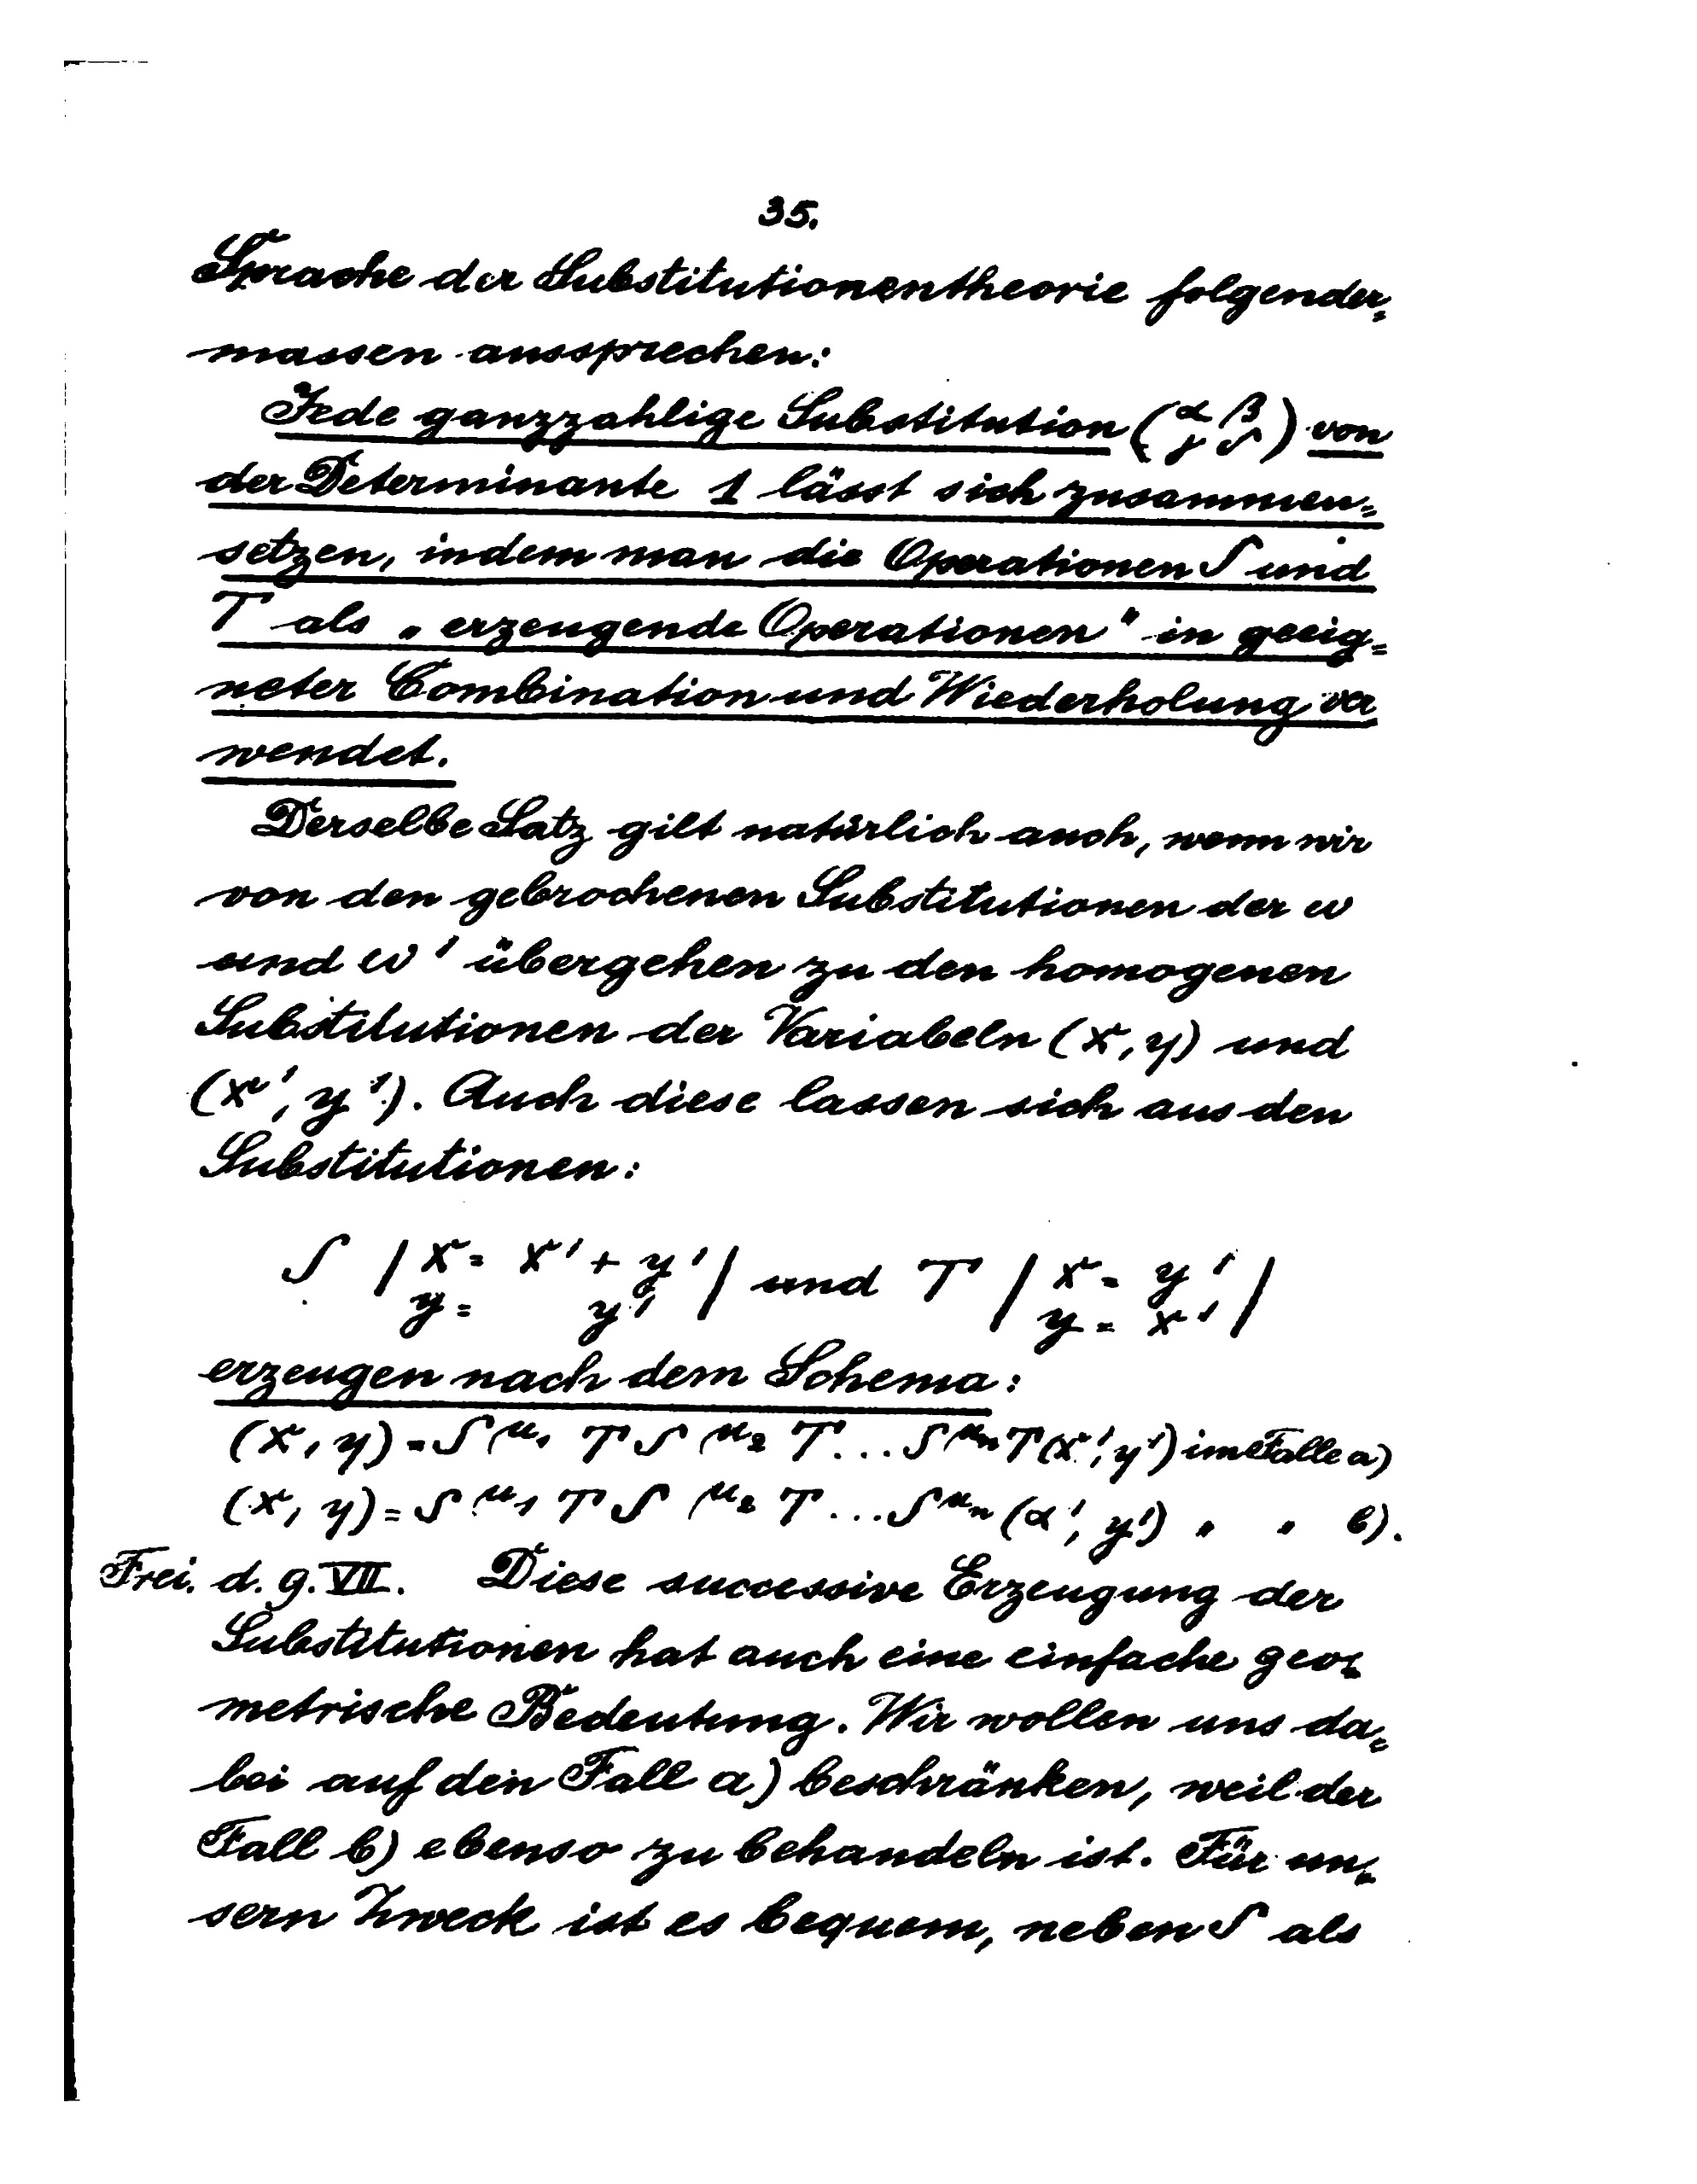 35.
Sprache der Substitutionentheorie folgender-
massen aussprechen:
Jede ganzzahlige Substitution (α β / γ δ) von
der Determinante 1 lässt sich zusammen-
setzen, indem man die Operationen S und
T als „erzeugende Operationen" in geeig-
neter Combination und Wiederholung ver
wendet.
Derselbe Satz gilt natürlich auch, wenn wir
von den gebrochenen Substitutionen der ω
und ω' übergehen zu den homogenen
Substitutionen der Variabeln (x, y) und
(x', y'). Auch diese lassen sich aus den
Substitutionen:
S | x = x' + y' | und T | x = y' |
y = y' y = x'
erzeugen nach dem Schema:
(x, y) = S^μ₁ T S^μ₂ T... S^μₙ T (x', y') im Falle a)
(x, y) = S^μ₁ T S^μ₂ T... S^μₙ (α', y') " " b).
Frei. d. 9. VII. Diese successive Erzeugung der
Substitutionen hat auch eine einfache geo-
metrische Bedeutung. Wir wollen uns da-
bei auf den Fall a) beschränken, weil der
Fall b) ebenso zu behandeln ist. Für un-
sern Zweck ist es bequem, neben S als